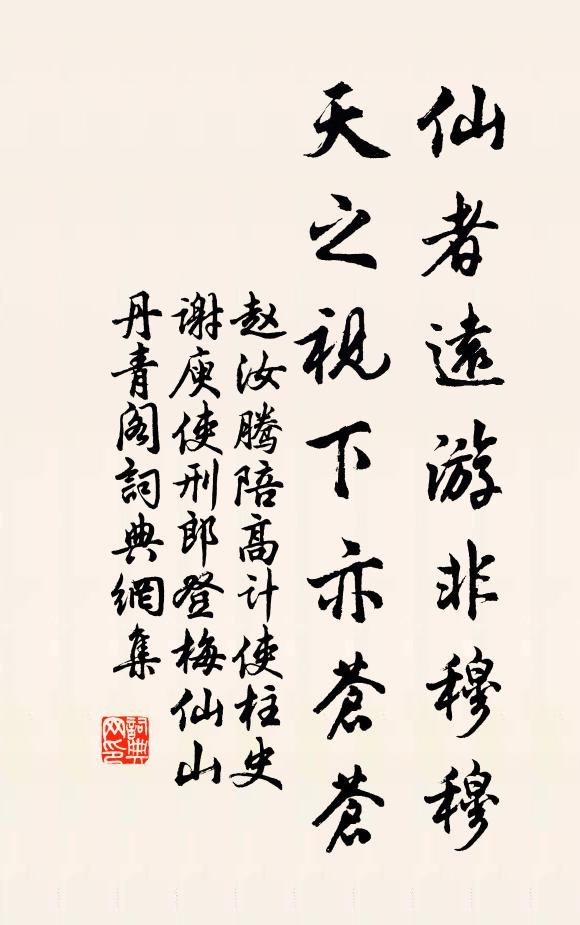 仙者遠游非穆穆
天之視下亦蒼蒼
赵汝腾陪高计使柱史
谢庾使刑郎登梅仙山
丹青阁詞典網集
詞典网印